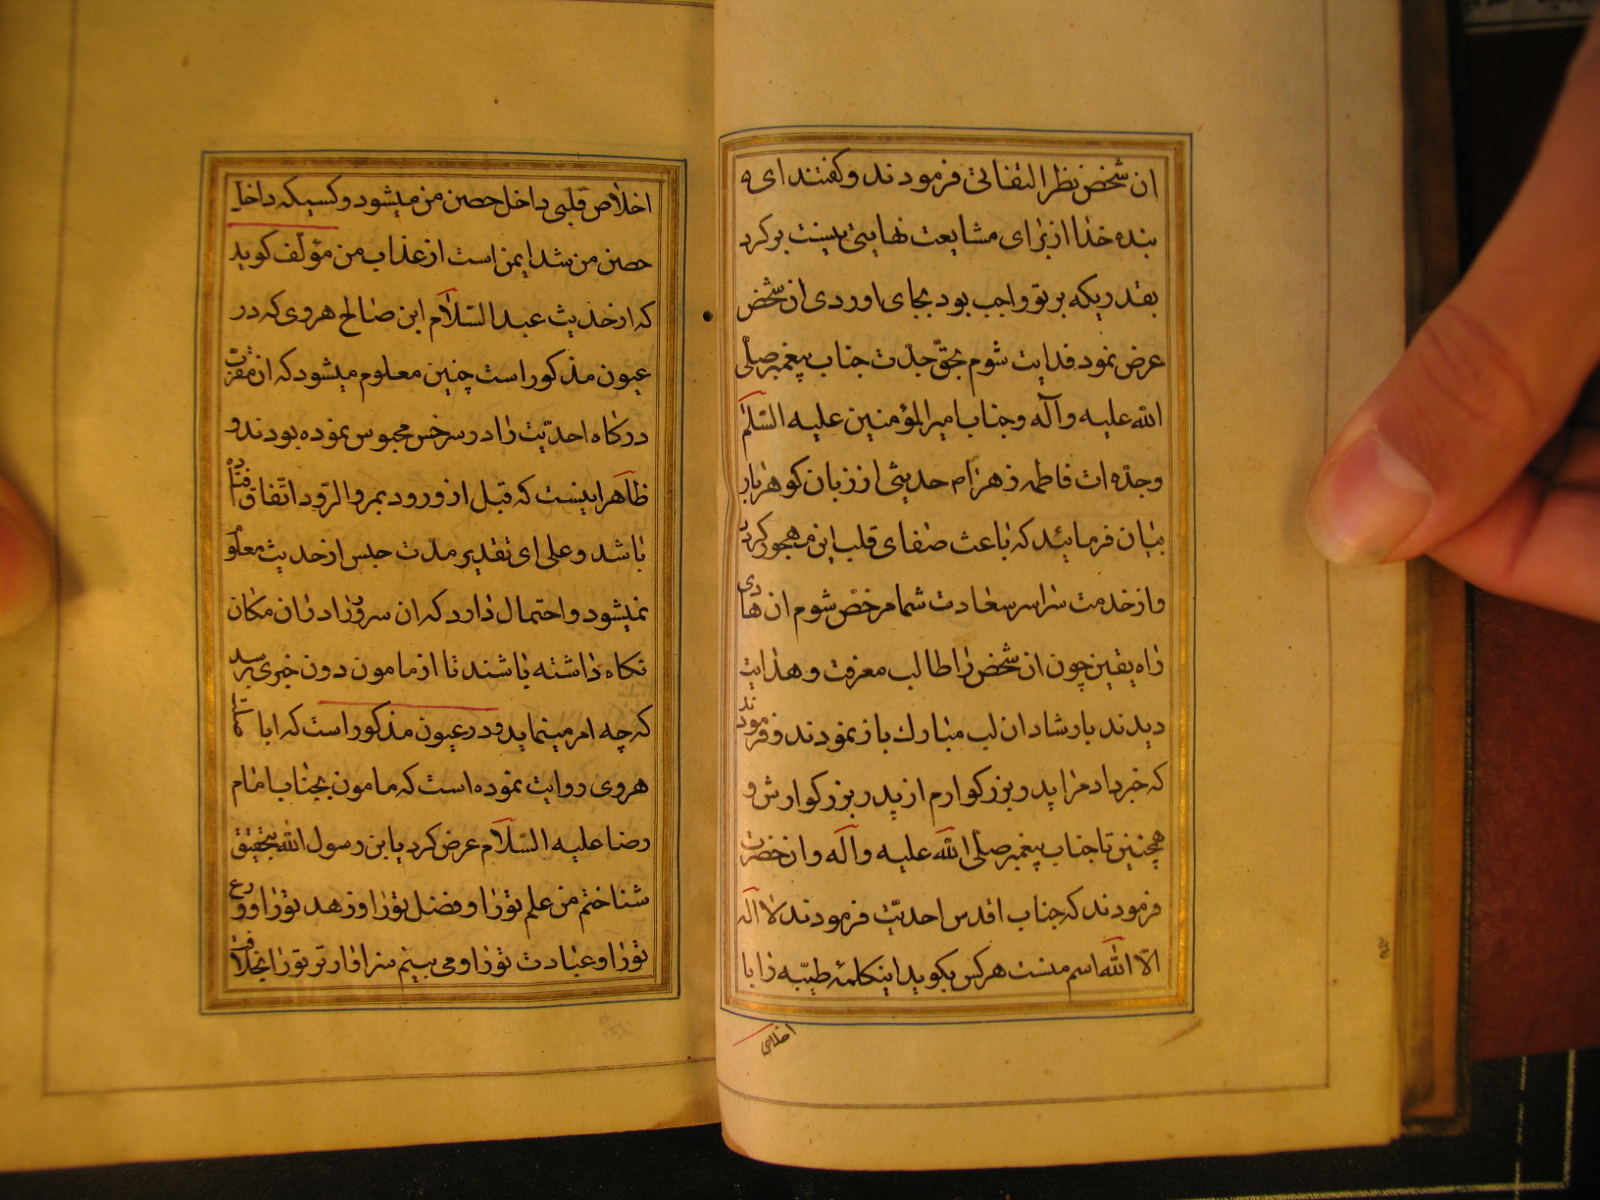 ان شخص نظر التفاتی فرمودند و کفتند ای
بنده خدا از برای مشایعت نهایتی نیست بر کرد
بقدریکه بر تو واجب بود بجای اوردی ان شخص
عرض نمود فدایت شوم بحق جدّت جناب پیغمبر صلّی
الله علیه وآله وجناب امیر المؤمنین علیه السّلم
وجدّه ات فاطمه زهرا ام حدیثی از زبان کوهربار
بیان فرمائید که باعث صفای قلب این مهجور کردد
واز خدمت سراسر سعادت شما مرخّص شوم ان هادی
راه یقین چون ان شخص را طالب معرفت و هدایت
دیدند بارشاد ان لب مبارك باز نمودند و فرمودند
که خبر داد مرا پدر بزرکوارم از پدر بزرکوارش و
همچنین تا جناب پیغمبر صلّی الله علیه وآله وان حضرت
فرمودند که جناب اقدس احدیّت فرمودند لا اله
الّا الله اسم منست هر کس بکوید اینکلمهٔ طیّبه را با
اخلاص
اخلاص قلبی داخل حصن من میشود و کسیکه داخل
حصن من شد ایمن است از عذاب من مؤلّف کوید
که از حدیث عبد السّلام ابن صالح هروی که در
عیون مذکور است چنین معلوم میشود که ان مقرّب
درکاه احدیّت را در سرخس محبوس نموده بودند و
ظاهر اینست که قبل از ورود بمرو الرّود اتّفاق افتاده
باشد و علی ای تقدیر مدّت حبس از حدیث معلوم
نمیشود و احتمال دارد که ان سرور را در ان مکان
نکاه داشته باشند تا از مامون دون خبری برسد
که چه امر مینماید و در عیون مذکور است که ابا
هروی روایت نموده است که مامون بجناب امام
رضا علیه السّلام عرض کرد یابن رسول الله بتحقیق
شناختم من علم تو را و فضل تو را و زهد تو را و ورع
تو را و عبادت تو را و می بینم سزاوارتر تو را بخلافت